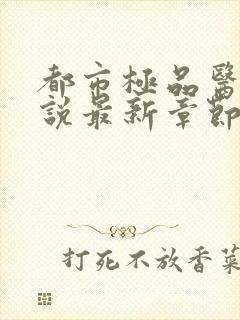 都市極品醫
說最新章節
打死不放香菜